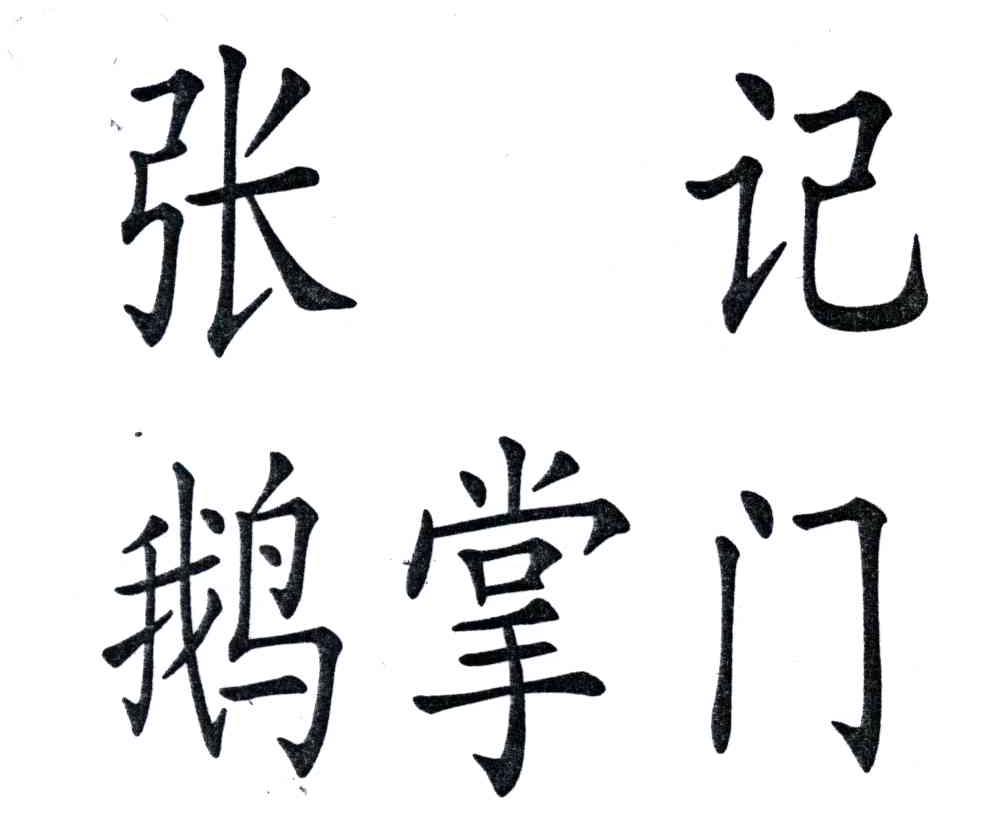 张 记
鹅掌门